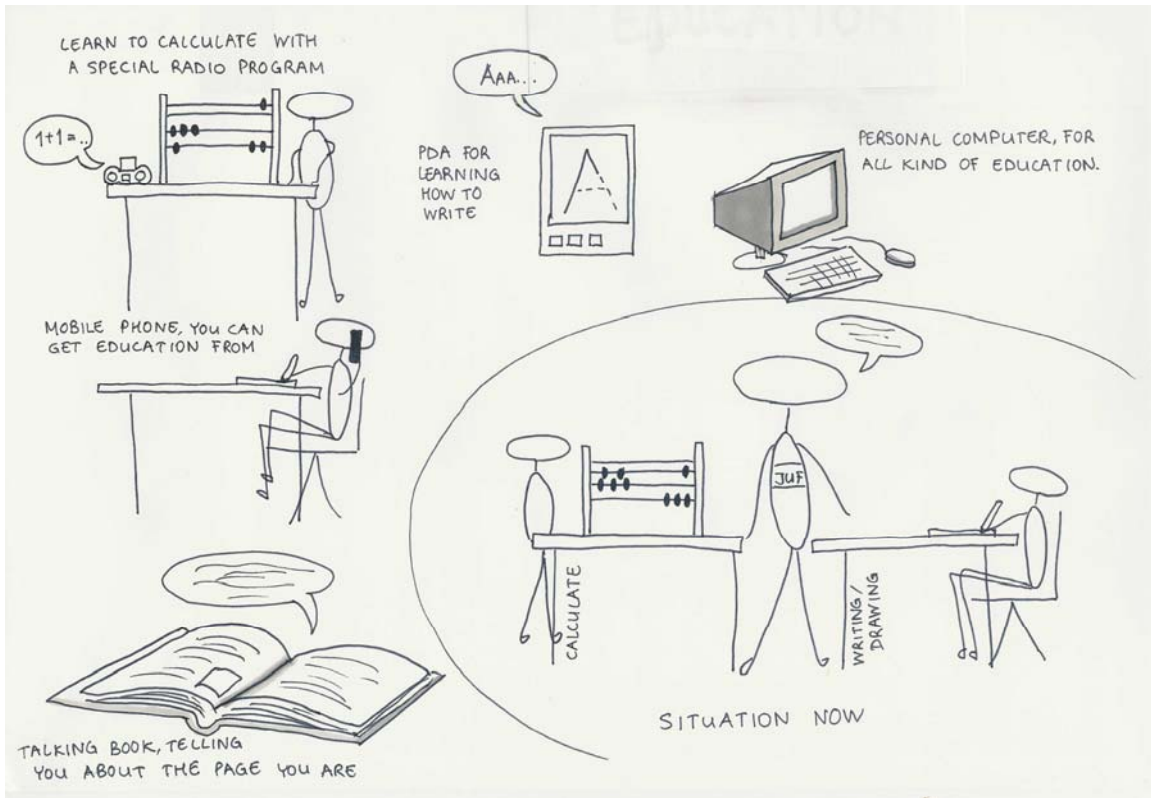 EDUCATION
LEARN TO CALCULATE WITH
A SPECIAL RADIO PROGRAM
1+1=..
AAA...
PDA FOR
LEARNING
HOW TO
WRITE
A
PERSONAL COMPUTER, FOR
ALL KIND OF EDUCATION.
MOBILE PHONE, YOU CAN
GET EDUCATION FROM
JUF
CALCULATE
WRITING/
DRAWING
SITUATION NOW
TALKING BOOK, TELLING
YOU ABOUT THE PAGE YOU ARE